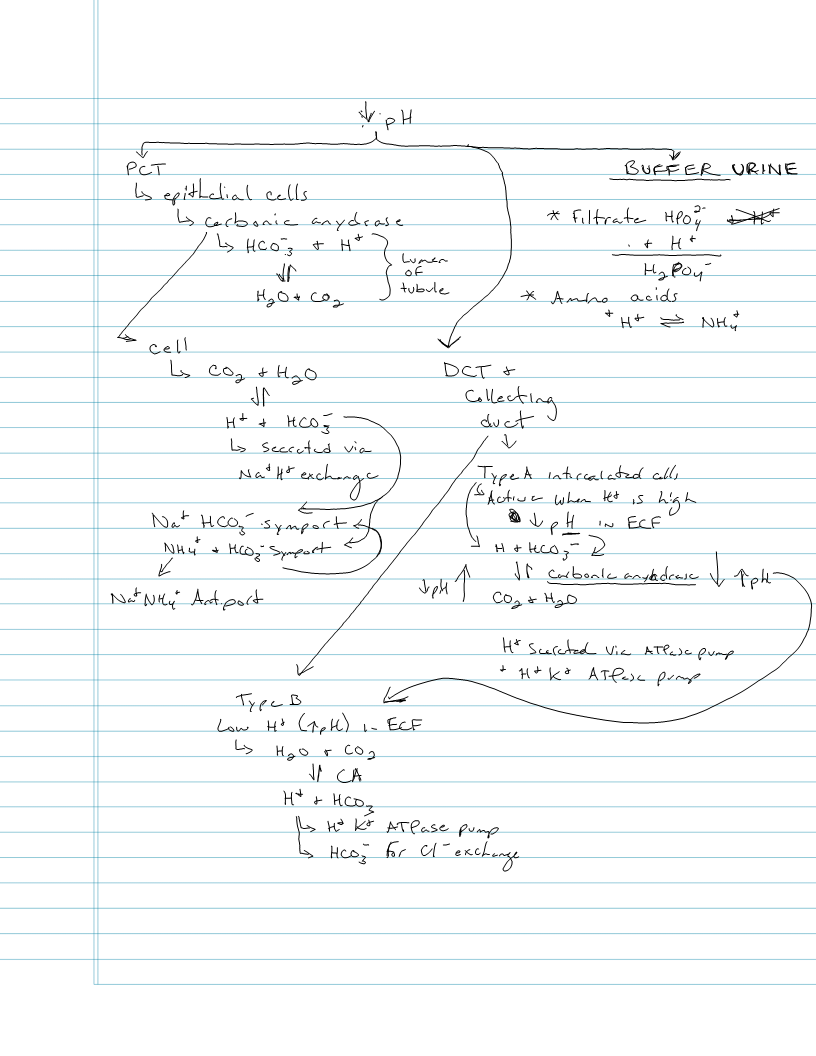 ↓ pH
PCT
↳ epithelial cells
↳ carbonic anydrase
↳ HCO₃⁻ + H⁺
⇌
H₂O + CO₂
Lumen
of
tubule
BUFFER URINE
* Filtrate HPO₄²⁻
+ H⁺
H₂PO₄⁻
* Amino acids
+ H⁺ ⇌ NH₄⁺
cell
↳ CO₂ + H₂O
⇌
H⁺ + HCO₃⁻
↳ secreted via
Na⁺ H⁺ exchange
Na⁺ HCO₃⁻ symport
NH₄⁺ + HCO₃⁻ symport
Na⁺ NH₄⁺ Antiport
DCT +
Collecting
duct
Type A intercalated cells
↳ Active when H⁺ is high
↓ pH in ECF
H + HCO₃⁻
⇌ carbonic anydrase
CO₂ + H₂O
↓ pH ↑
↓ ↑ pH
H⁺ secreted via ATPase pump
+ H⁺ K⁺ ATPase pump
Type B
Low H⁺ (↑pH) in ECF
↳ H₂O + CO₂
⇌ CA
H⁺ + HCO₃
↳ H⁺ K⁺ ATPase pump
↳ HCO₃⁻ for Cl⁻ exchange